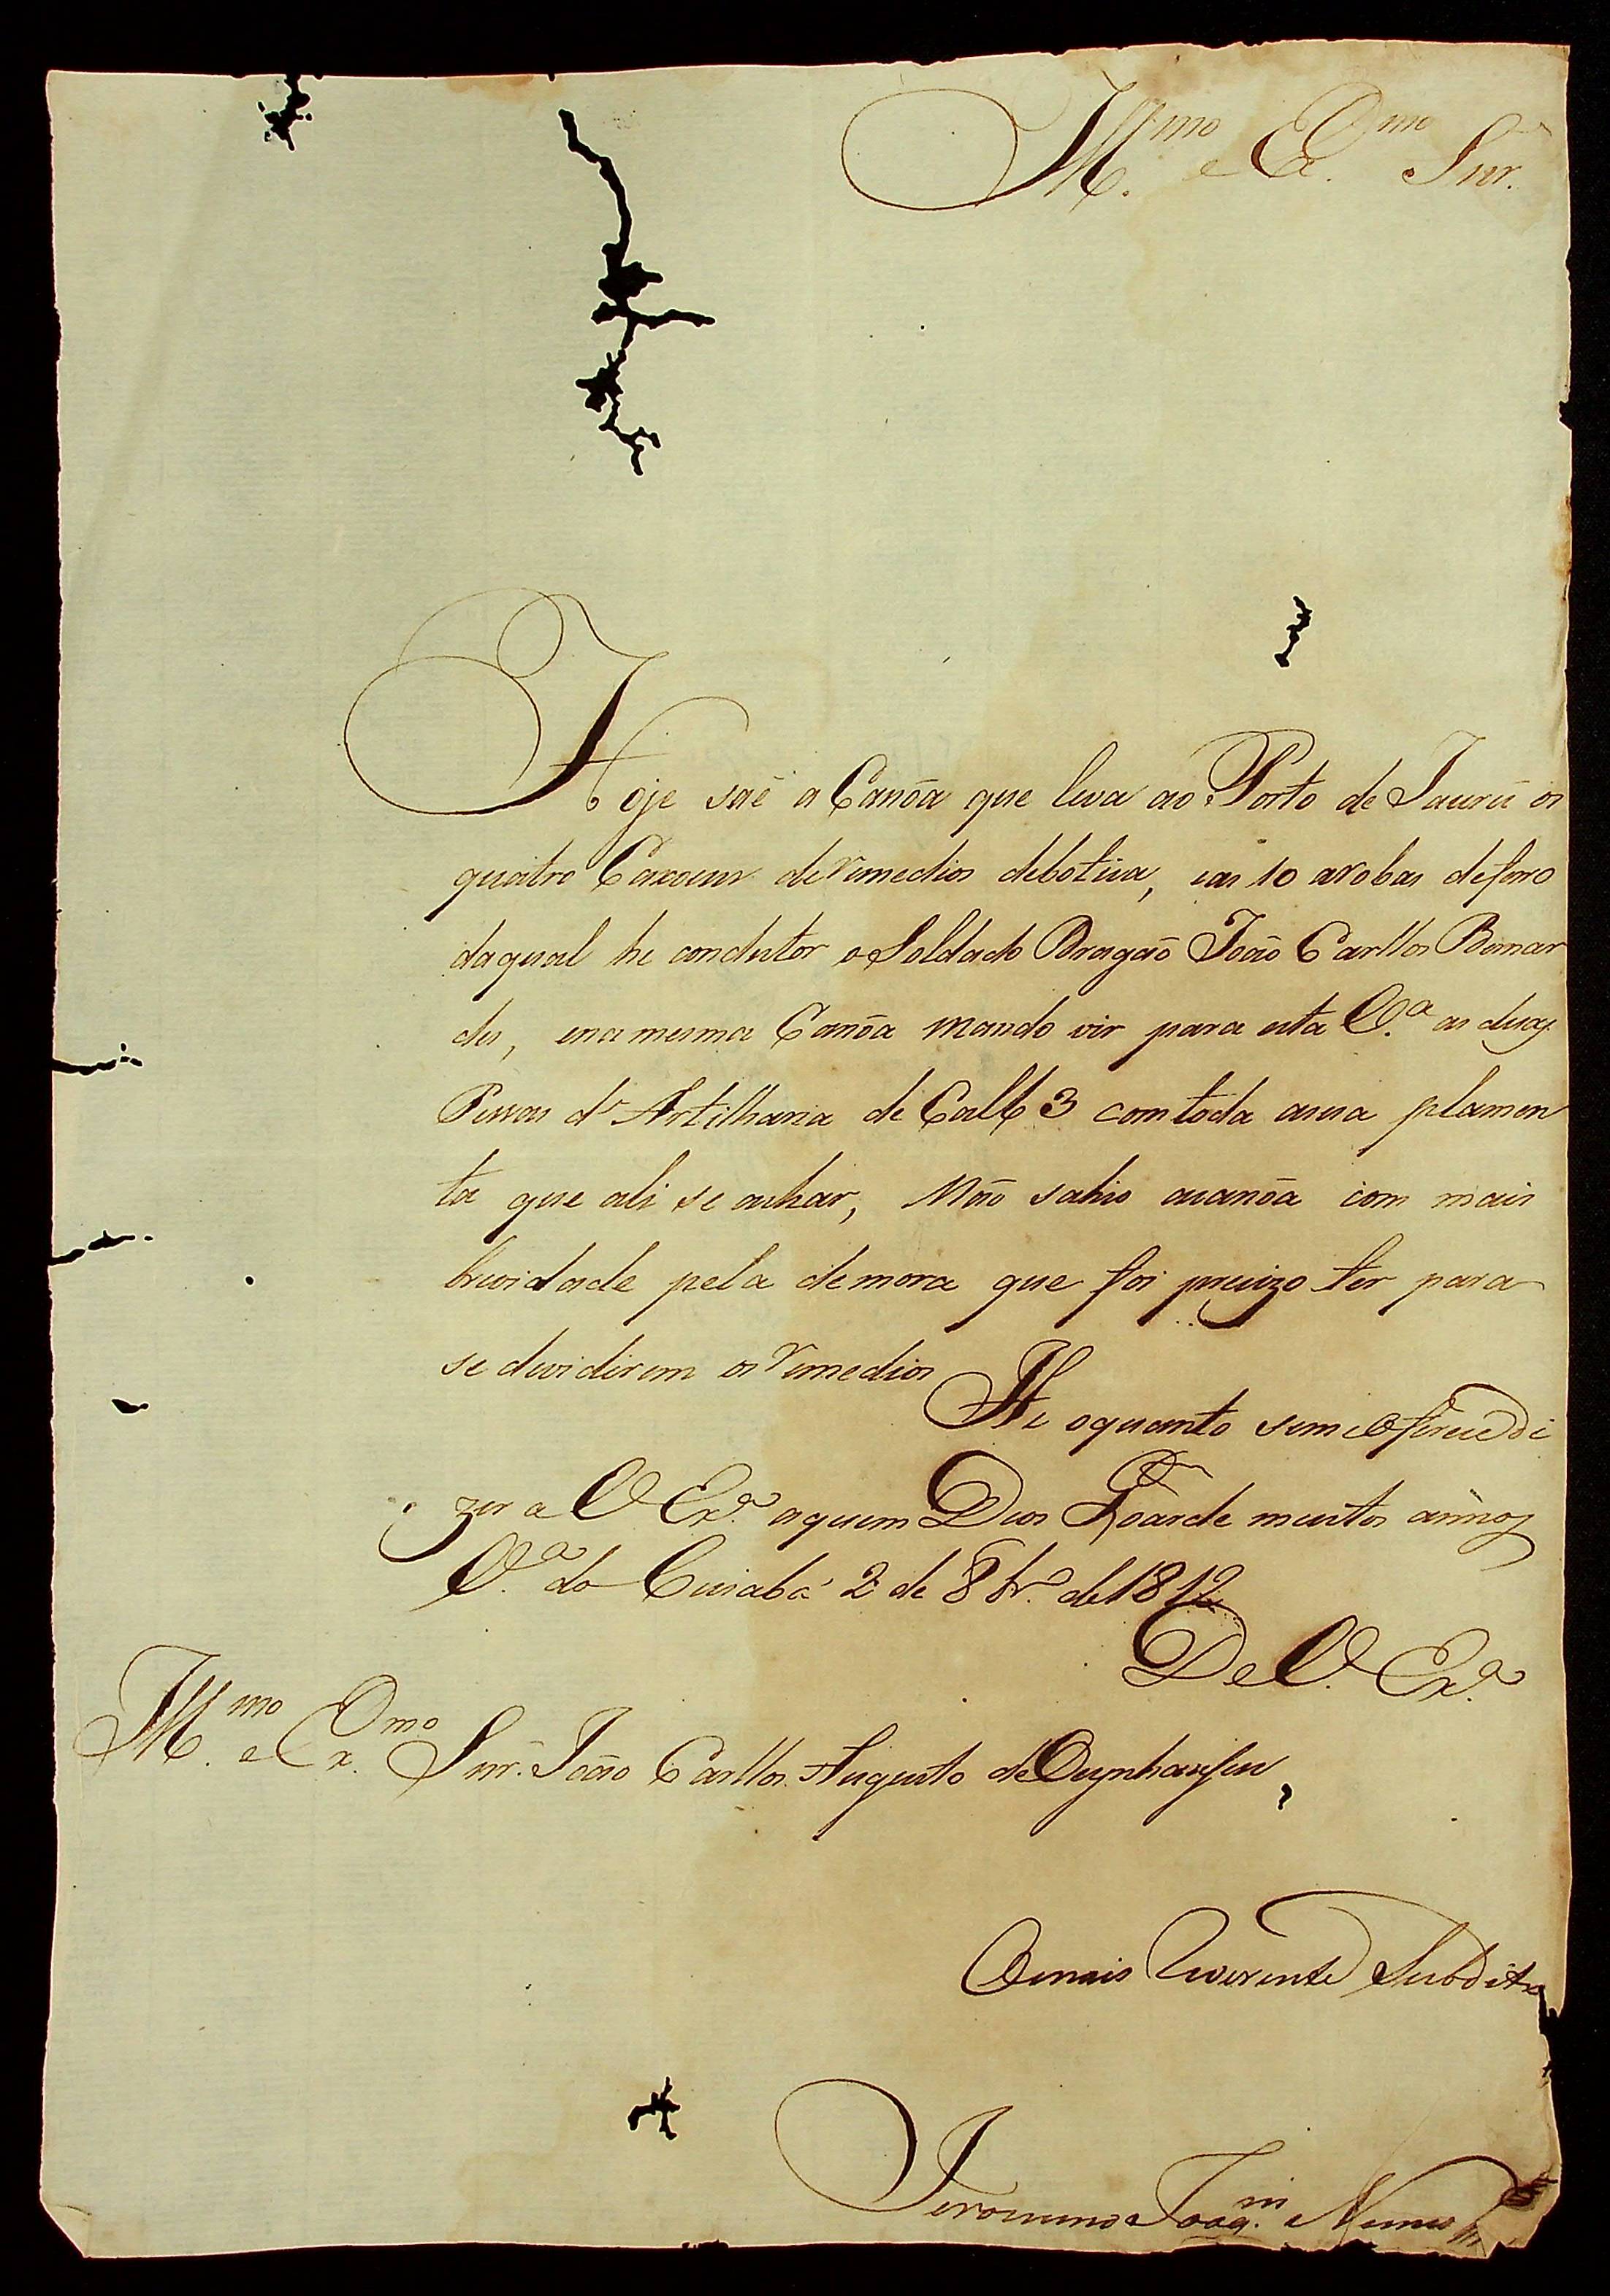 Ill.mo e Ex.mo Snr.
Hoje sae a Canôa que leva ao Porto de Jaurú os
quatro Caxoens de remedios debotica, eas 10 arobas deferro
daqual he condutor o Soldado Dragaõ Joaõ Carllos Bernar
des, ena mesma Canôa mando vir para esta V.ª as duas
Pessas d'Artilharia de Calb 3 comtoda asua plamen
ta que ali se achar, Naõ sahio acanôa com mais
brevidade pela demora que foi precizo ter para
se devidirem os remedios He oquanto seme oferece di
zer a V. Ex.ª aquem Deos Goarde muitos annos
V.ª do Cuiabá 2 de 8br.º de 1812
De V. Ex.ª
Ill.mo e Ex.mo Snr. Joaõ Carllos Augusto de Oeynhausen,
Omais Reverente Subdito
Jeronimo Joaq.m Nunes